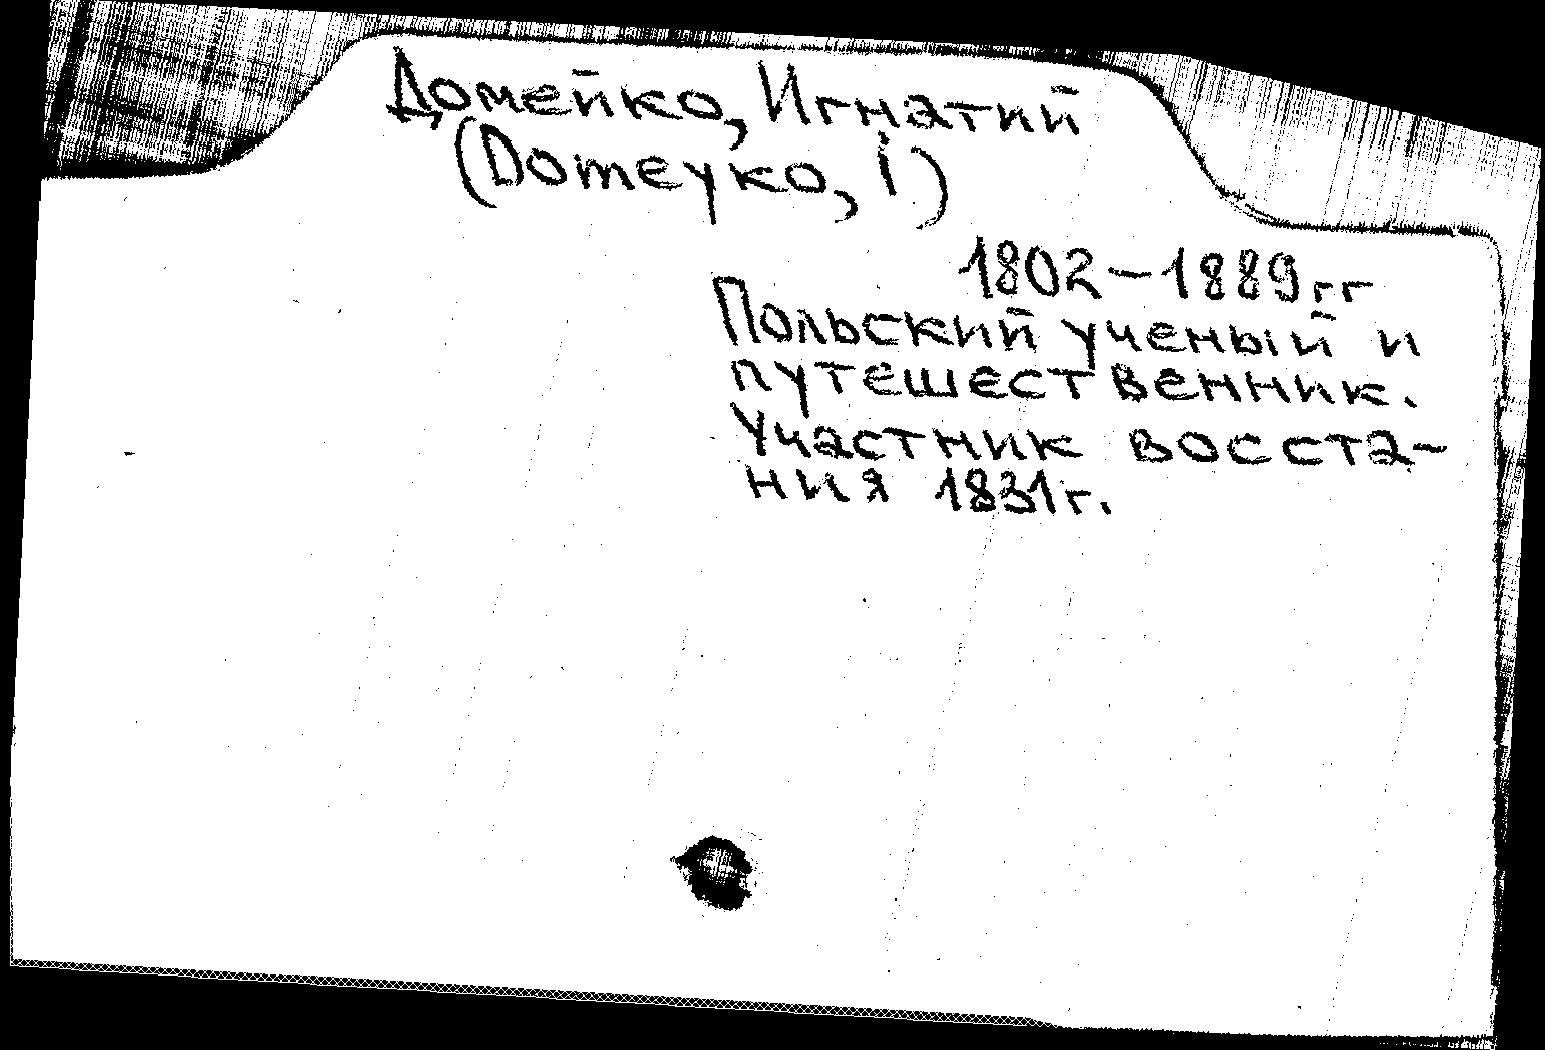 Домейко, Игнатий
(Domeyko, I)
1802-1889гг
Польский ученый и
путешественник.
Участник восста-
ния 1831г.